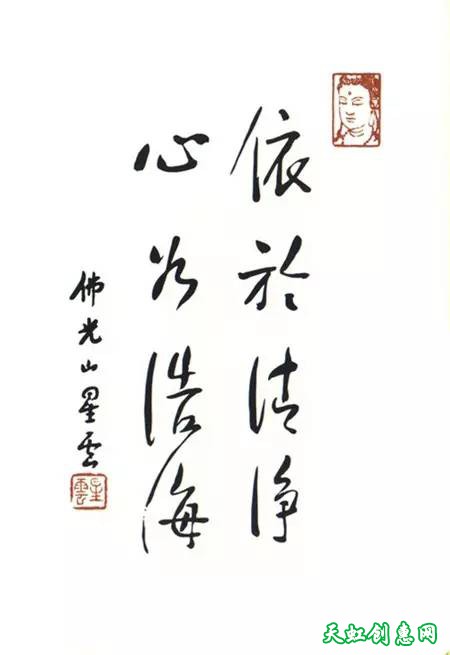 依於清淨
心為浩海
佛光山星雲
星雲
天虹创意网